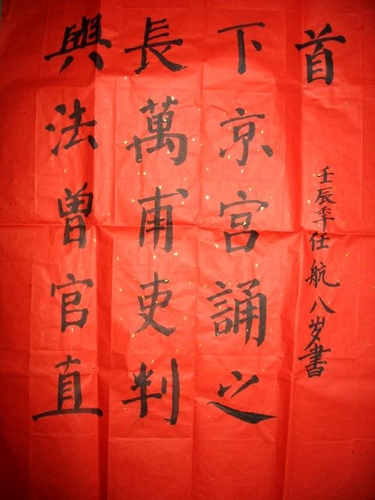 與法曾官直
長萬甫吏判
下京宮誦之
首
壬辰年任航八岁書